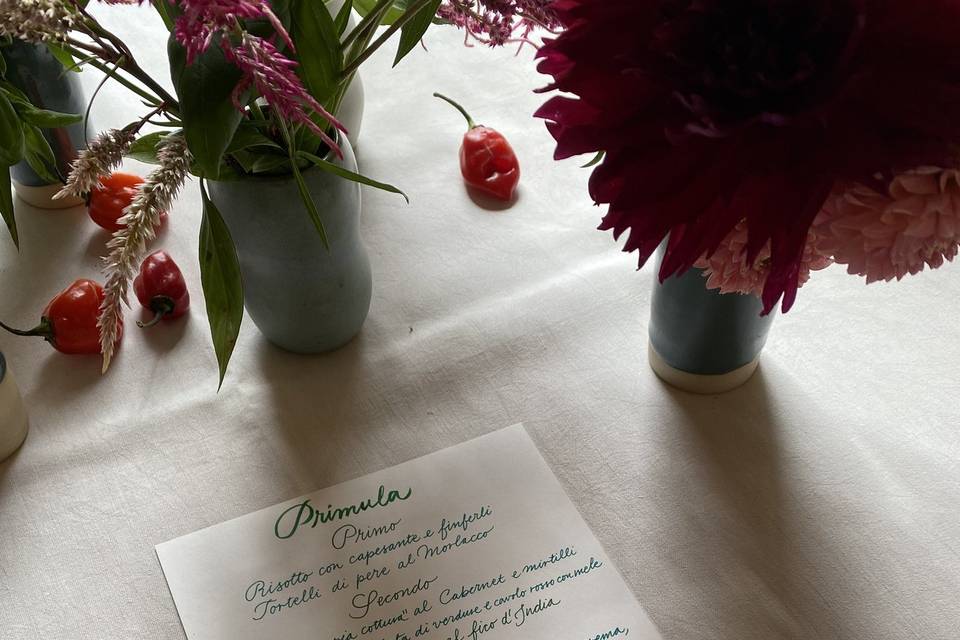 Primula
Primo
Risotto con capesante e finferli
Tortelli di pere al Morlacco
Secondo
cottura" al Cabernet e mirtilli
di verdure e cavolo rosso con mele
fico d'India